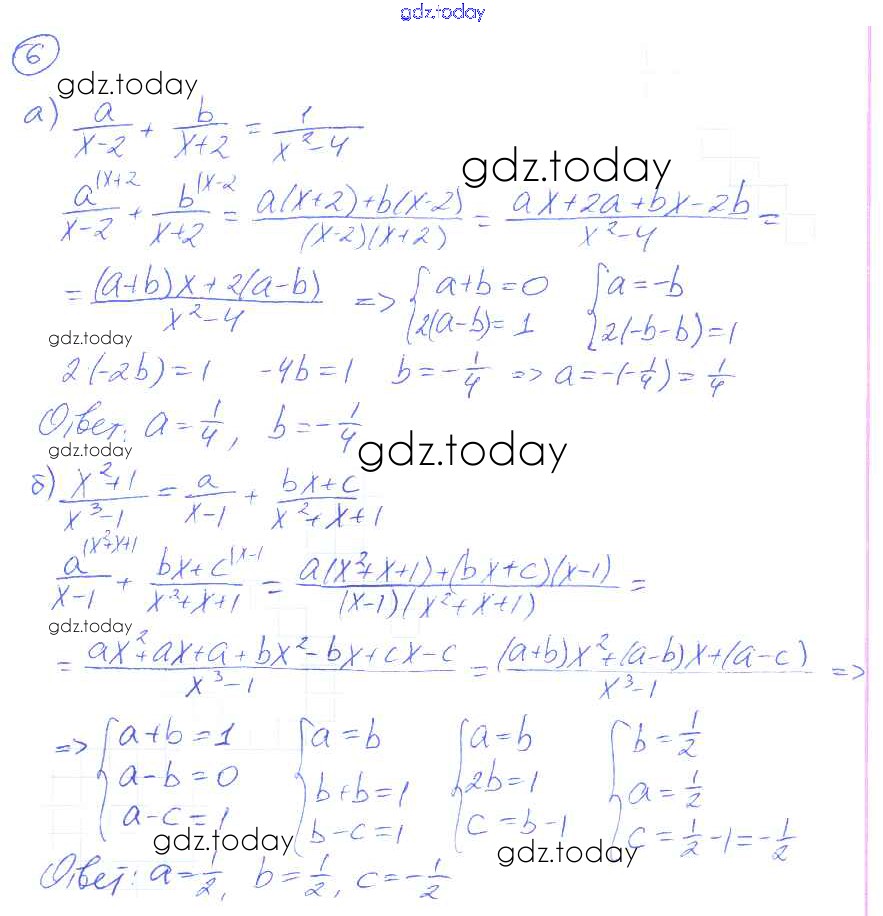 gdz.today
6
gdz.today
а) a/(x-2) + b/(x+2) = 1/(x²-4)
gdz.today
a^(|x+2)/(x-2) + b^(|x-2)/(x+2) = (a(x+2)+b(x-2))/((x-2)(x+2)) = (ax+2a+bx-2b)/(x²-4) =
= ((a+b)x+2(a-b))/(x²-4) => { a+b=0 { a=-b
{ 2(a-b)=1 { 2(-b-b)=1
gdz.today
2(-2b)=1 -4b=1 b=-1/4 => a=-(-1/4)=1/4
Ответ: a=1/4, b=-1/4
gdz.today
gdz.today
б) (x²+1)/(x³-1) = a/(x-1) + (bx+c)/(x²+x+1)
a^(|x²+x+1)/(x-1) + (bx+c)^(|x-1)/(x²+x+1) = (a(x²+x+1)+(bx+c)(x-1))/((x-1)(x²+x+1)) =
gdz.today
= (ax²+ax+a+bx²-bx+cx-c)/(x³-1) = ((a+b)x²+(a-b)x+(a-c))/(x³-1) =>
=> { a+b=1 { a=b { a=b { b=1/2
{ a-b=0 { b+b=1 { 2b=1 { a=1/2
{ a-c=1 { b-c=1 { c=b-1 { c=1/2-1=-1/2
gdz.today
gdz.today
Ответ: a=1/2, b=1/2, c=-1/2